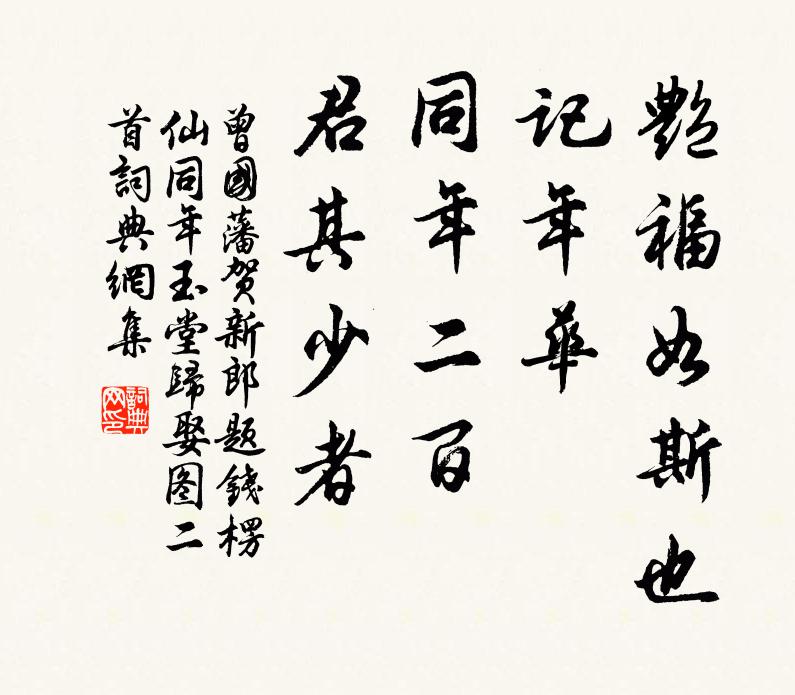 艷福如斯也
記年華
同年二百
君其少者
曾國藩賀新郎題錢楞
仙同年玉堂歸娶图二
首詞典網集
詞典网印